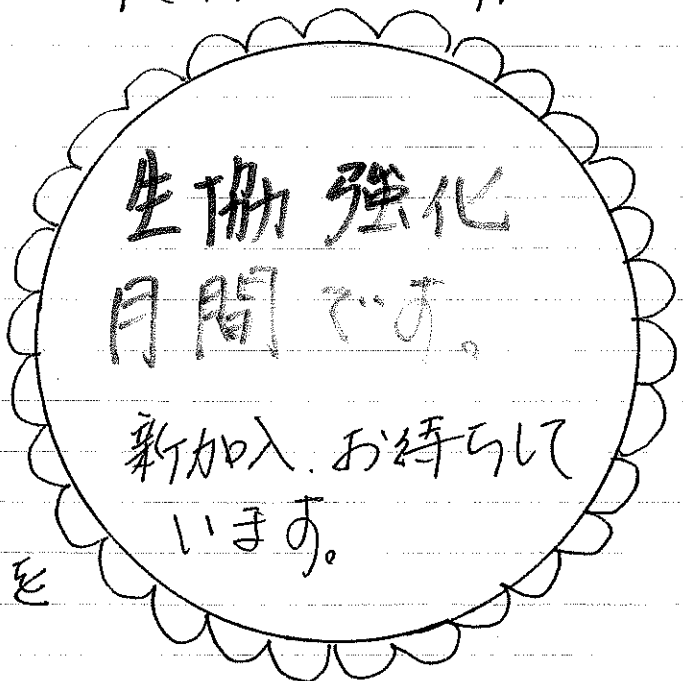 生協強化
月間です。
新加入、お待ちして
います。
を